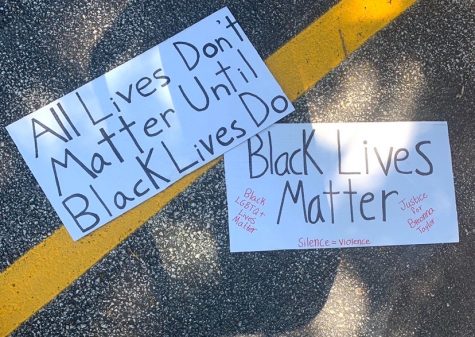 All Lives Don't
Matter Until
Black Lives Do
Black Lives
Matter
Black
LGBTQ+
Lives
Matter
Justice
for
Breonna
Taylor
Silence = Violence